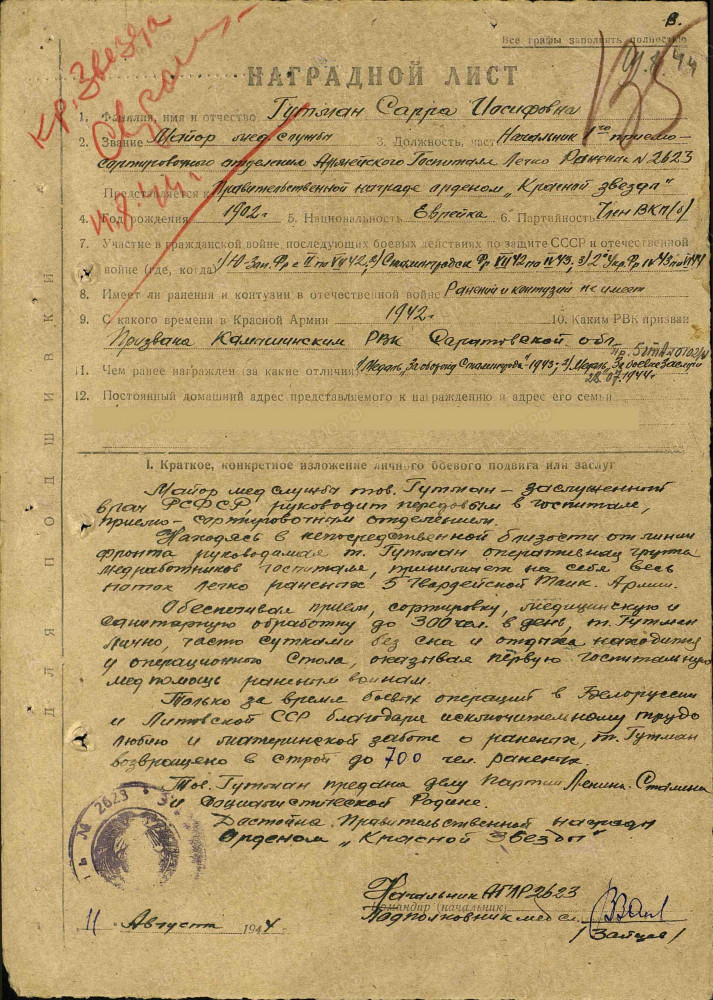 Кр. Звезда
В.
Все графы заполнять полностью
НАГРАДНОЙ ЛИСТ
1. Фамилия, имя и отчество Гутман Сарра Иосифовна
2. Звание Майор мед службы 3. Должность, часть Начальник 1го приемо-
сортировочного отделения Армейского Госпиталя Легко Раненых № 2623
Представляется к Правительственной награде орденом „Красной звезды"
4. Год рождения 1902 г 5. Национальность Еврейка 6. Партийность Член ВКП(б)
7. Участие в гражданской войне, последующих боевых действиях по защите СССР и отечественной
войне (где, когда) 1) Ю-Зап. Фр с II по VII 42, 2) Сталинградск Фр VII 42 по IV 43, 3) 2й Укр. Фр
8. Имеет ли ранения и контузии в отечественной войне Ранений и контузий не имеет
9. С какого времени в Красной Армии 1942 г. 10. Каким РВК призван
Призвана Камышинским РВК Саратовской обл.
11. Чем ранее награжден (за какие отличия) 1) Медаль „За оборону Сталинграда" - 1943; 2) Медаль „За боевые заслуги
28.07.1944 г
12. Постоянный домашний адрес представляемого к награждению и адрес его семьи
ДЛЯ ПОДШИВКИ
I. Краткое, конкретное изложение личного боевого подвига или заслуг
Майор мед службы тов. Гутман - заслуженный
врач РСФСР, руководит передовым в госпитале,
приемо-сортировочным отделением.
Находясь в непосредственной близости от линии
фронта руководимая т. Гутман оперативная группа
медработников госпиталя, принимает на себя весь
поток легко раненых 5 Гвардейской Танк. Армии.
Обеспечивая прием, сортировку, медицинскую и
санитарную обработку до 300 чел. в день, т. Гутман
лично, часто сутками без сна и отдыха находится
у операционного стола, оказывая первую госпитальную
медпомощь раненым воинам.
Только за время боевых операций в Белоруссии
и Литовской ССР благодаря исключительному трудо
любию и материнской заботе о раненых, т. Гутман
возвращено в строй до 700 чел. раненых.
Тов. Гутман предана делу Партии Ленина-Сталина
и Социалистической Родине.
Достойна Правительственной награды
Орденом „Красной Звезды"
№ 2623
Начальник АГЛР 2623
Командир (начальник)
Подполковник мед сл.
/Зайцев/
11 Августа 1944